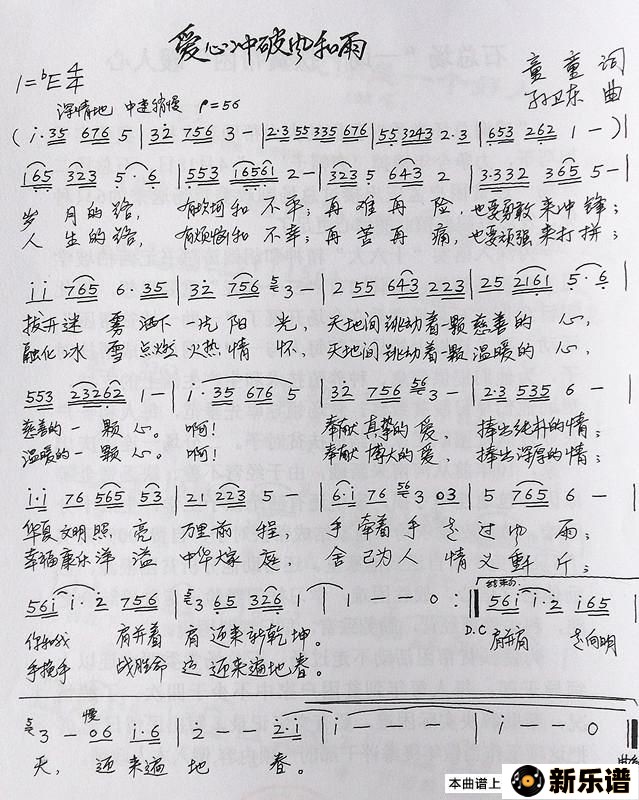 爱心冲破风和雨
1=bE 4/4
童童 词
孙卫东 曲
深情地 中速稍慢 ♩=56
(i·35 676 5 | 32 756 3 - | 2·3 55335 676 | 55 3243 2·3 | 653 262 1 - )|
165 323 5·6 | 553 16561 2 - | 323 5 643 2 | 3·332 365 5 - |
岁月的路， 有坎坷和不平；再难再险，也要勇敢来冲锋；
人生的路， 有烦恼和不幸；再苦再痛，也要顽强来打拼；
ii 765 6·35 | 32 756 3 - | 2 55 643 223 | 25 2161 5·6 |
拨开迷雾洒下一片阳光，天地间跳动着一颗慈善的心，
融化冰雪点燃火热情怀，天地间跳动着一颗温暖的心，
553 23262 1 - | i·35 676 5 | 32 756 56 3 - | 2·3 535 6 - |
慈善的一颗心。啊！ 奉献真挚的爱，捧出纯朴的情；
温暖的一颗心。啊！ 奉献博大的爱，捧出深厚的情；
i·i 76 565 53 | 21 223 5 - | 6·i 76 56 3 03 | 5 765 6 - |
华夏文明照亮 万里前程，手牵着手走过风雨；
幸福康乐洋溢 中华大家庭，舍己为人情义重千斤；
56i i·2 756 | 5 3 65 326 1 | 1 - - 0 :‖ 结束句 56i i·2 i65
你和我 肩并着肩迎来新乾坤。 D.C 肩并肩 走向明
手挽手 战胜命运迎来遍地春。
5 3 - 06 i·6 | 2 - - 2·1 | i - - - | i - - 0 ‖
慢
天，迎来遍地春。
本曲谱上 新乐谱